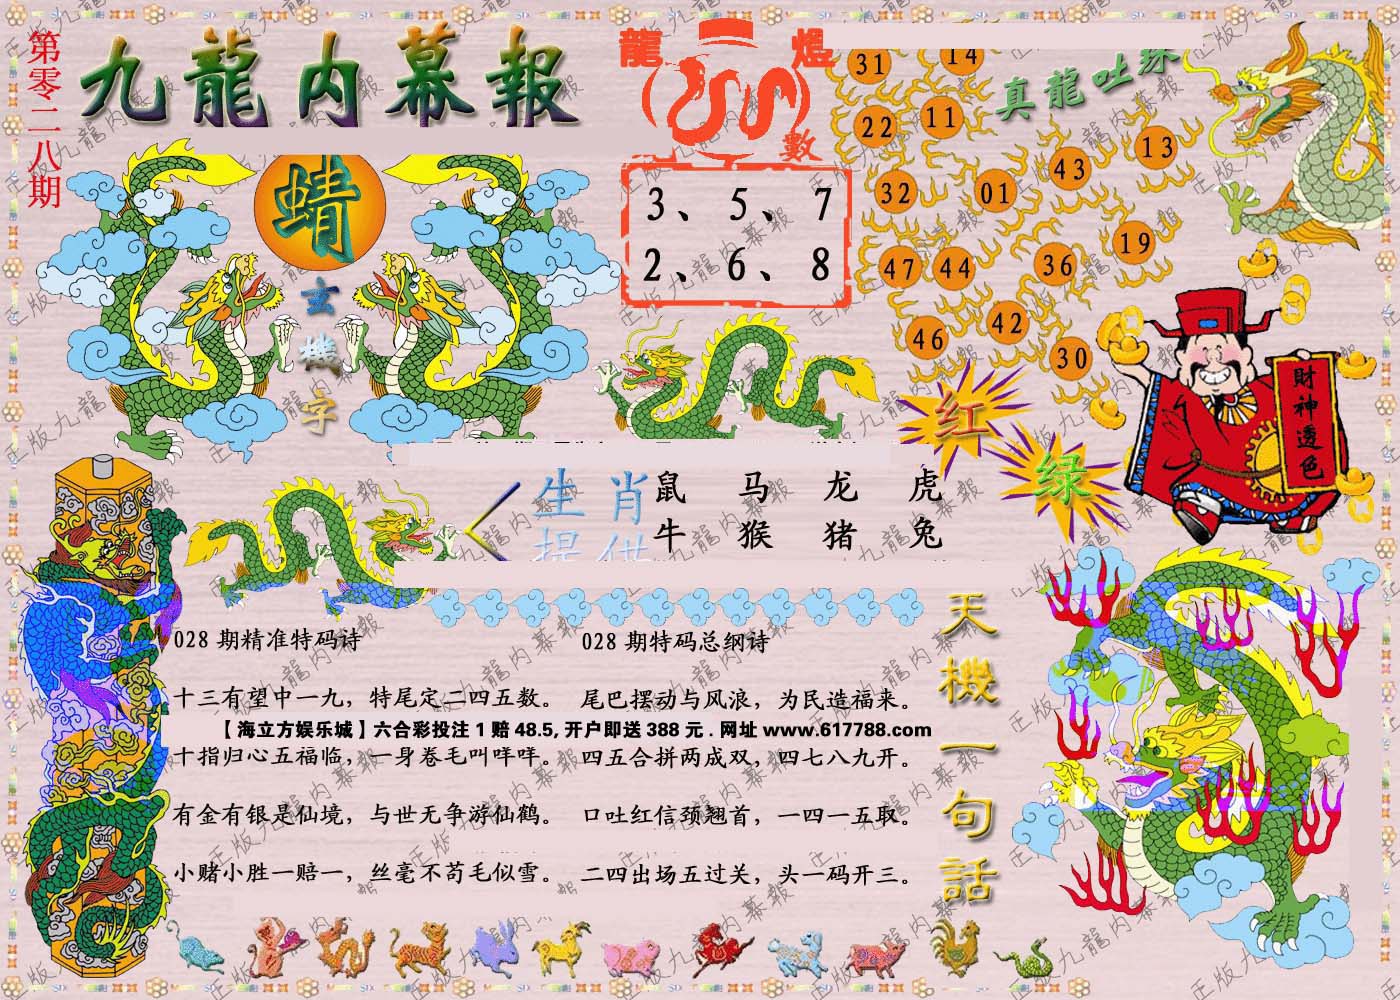 第零二八期
九龍内幕報
龍煜
數
3、5、7
2、6、8
蜻
玄機字
真龍吐珠
31
14
22
11
13
43
32
01
19
47
44
36
46
42
30
红
绿
財神透色
生肖
提供
鼠 马 龙 虎
牛 猴 猪 兔
天機一句話
028 期精准特码诗
十三有望中一九，特尾定二四五数。
【海立方娱乐城】六合彩投注 1 赔 48.5, 开户即送 388 元 . 网址 www.617788.com
十指归心五福临，一身卷毛叫咩咩。
有金有银是仙境，与世无争游仙鹤。
小赌小胜一赔一，丝毫不苟毛似雪。
028 期特码总纲诗
尾巴摆动与风浪，为民造福来。
四五合拼两成双，四七八九开。
口吐红信颈翘首，一四一五取。
二四出场五过关，头一码开三。
正版九龍内幕報